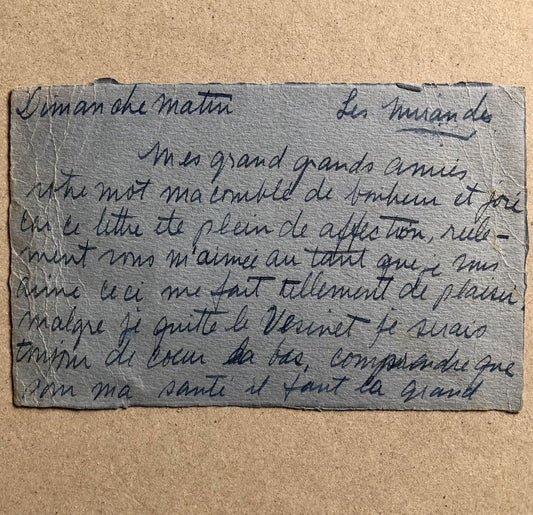 Dimanche matin Les Mirandes
Mes grand grands amies
votre mot ma comble de bonheur et joie
car ce lettre ete plein de affection, reele-
ment vous m'aimée au tant que je vous
aime ceci me fait tellement de plaisir,
malgre je quitte le Vesinet je serais
toujour de coeur la bas, comprendre que
pour ma santé il faut la grand